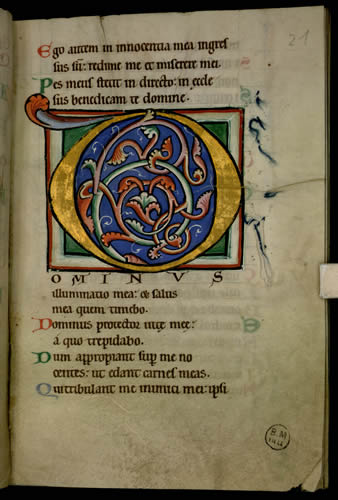 21
Ego autem in innocentia mea ingres
sus sū: redime me & miserere mei.
Pes meus stetit in directo: in eccle
siis benedicam te domine.
D
OMINVS
illuminatio mea: & salus
mea quem timebo.
Dominus protector uitę meę:
a quo trepidabo.
Dum appropiant sup me no
centes: ut edant carnes meas.
Qui tribulant me inimici mei: ipsi
B.M